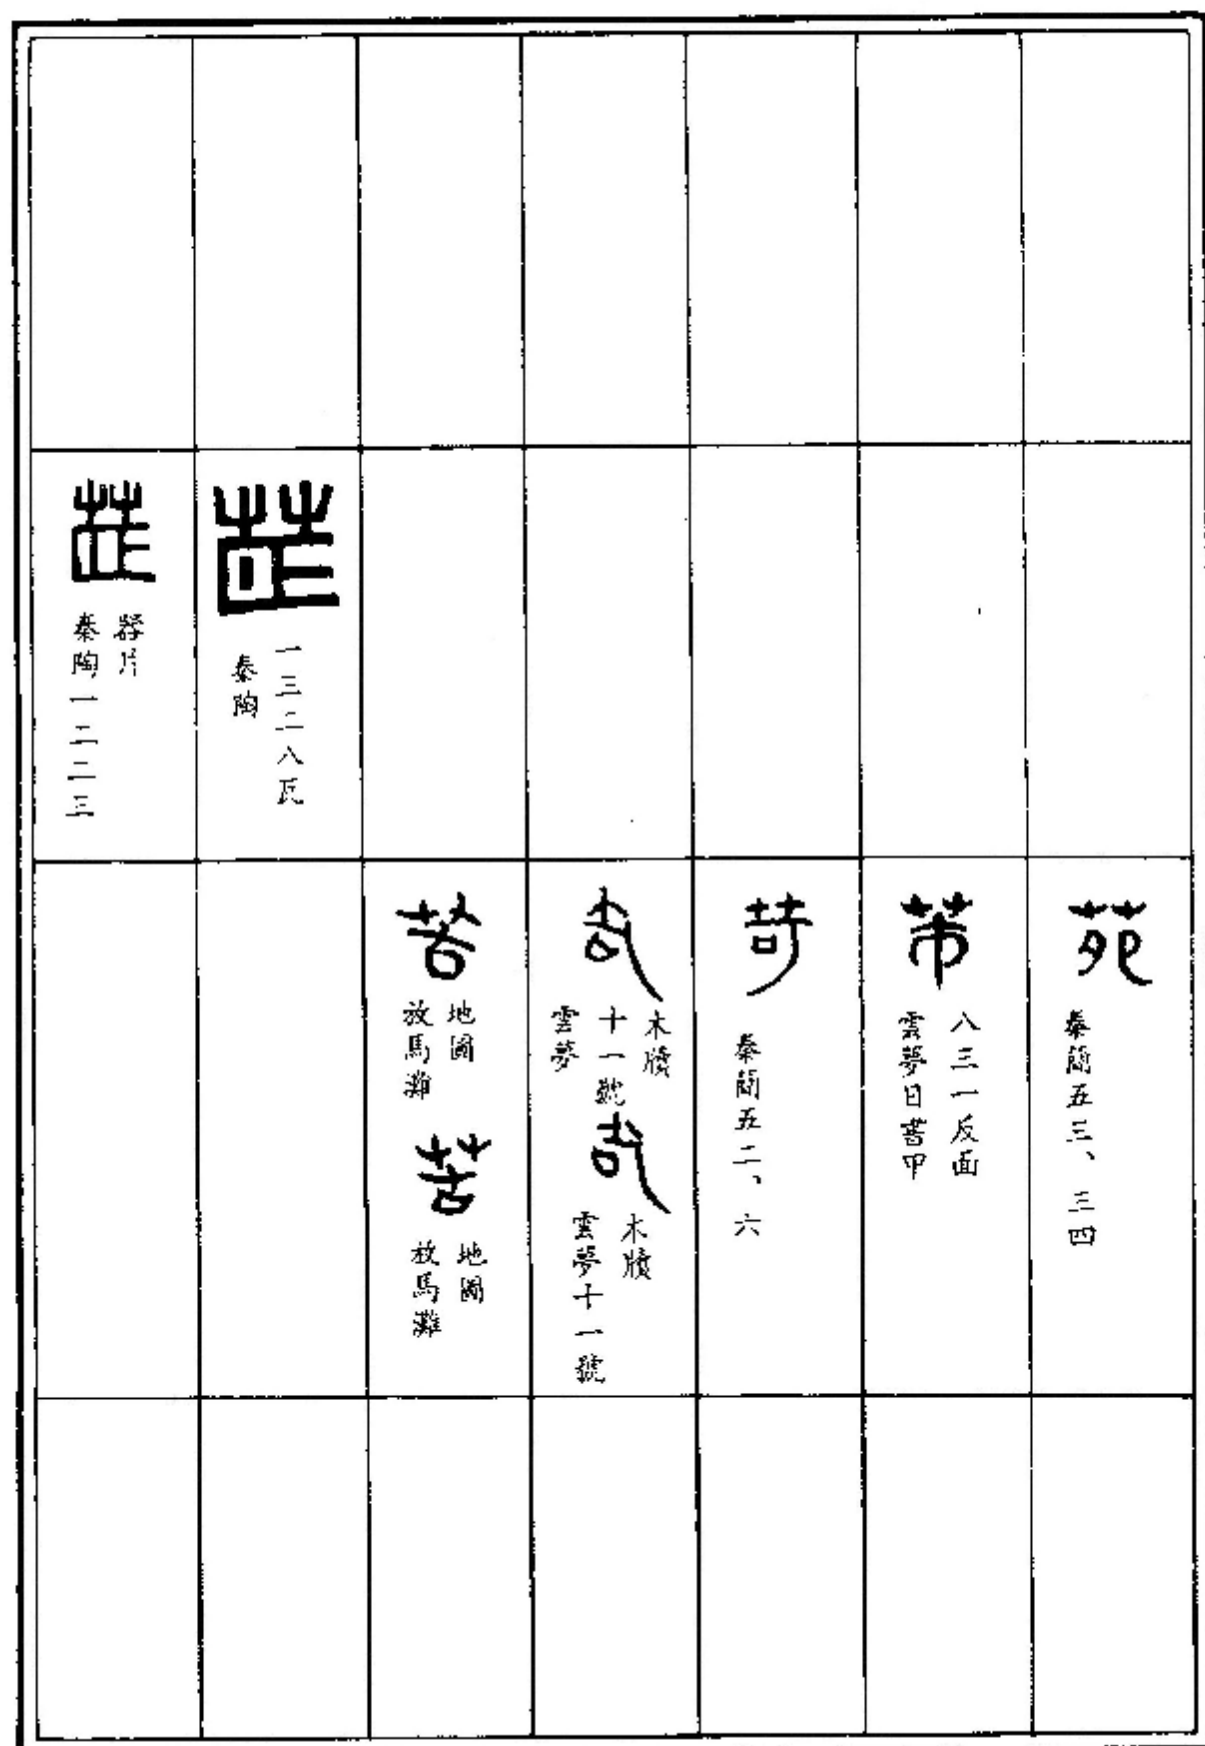 苑
秦簡五三、三四
芾
雲夢日書甲
八三一反面
苛
秦簡五二、六
雲夢
十一號
木牘
雲夢十一號
木牘
若
放馬灘
地圖
苦
放馬灘
地圖
秦陶
一三二八瓦
秦陶一三三三
器片